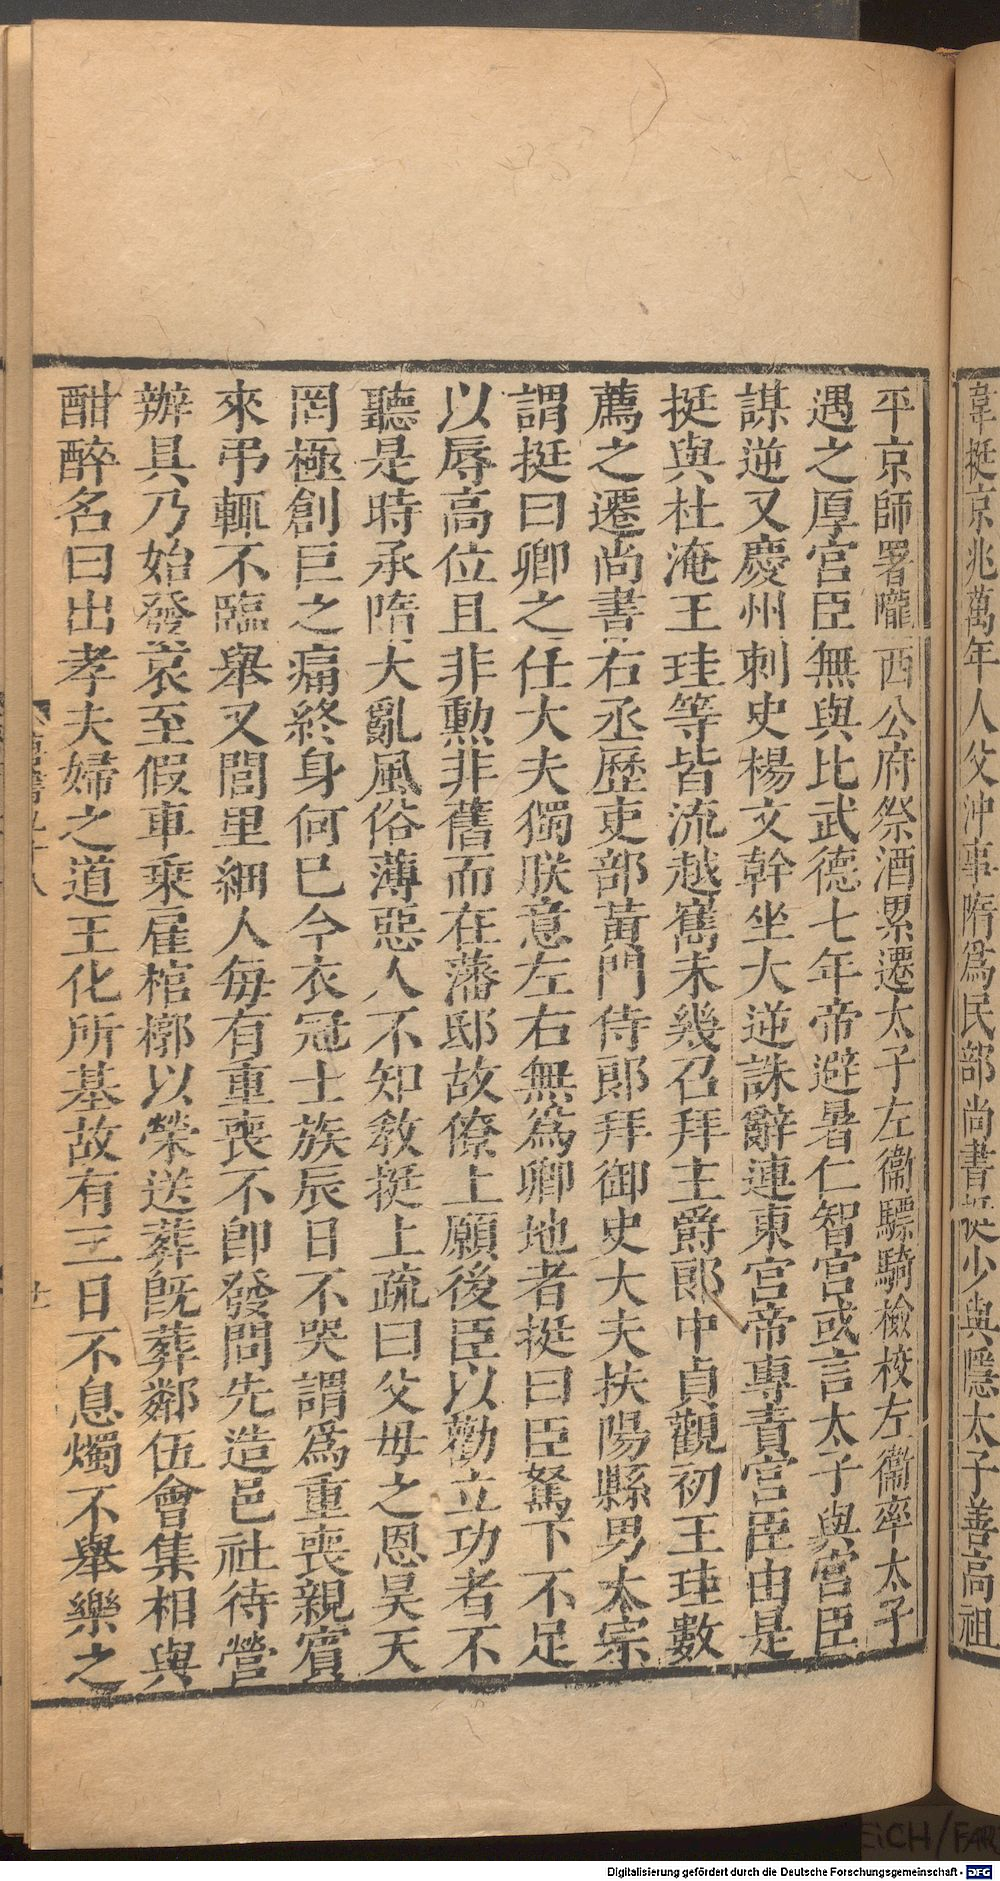 韋挺京兆萬年人父沖事隋爲民部尚書挺少與隱太子善高祖
平京師署隴西公府祭酒累遷太子左衞驃騎檢校左衞率太子
遇之厚宮臣無與比武德七年帝避暑仁智宮或言太子與宮臣
謀逆又慶州刺史楊文幹坐大逆誅辭連東宮帝專責宮臣由是
挺與杜淹王珪等皆流越巂未幾召拜主爵郎中貞觀初王珪數
薦之遷尚書右丞歷吏部黃門侍郎拜御史大夫扶陽縣男太宗
謂挺曰卿之任大夫獨朕意左右無爲卿地者挺曰臣駑下不足
以辱高位且非勳非舊而在藩邸故僚上願後臣以勸立功者不
聽是時承隋大亂風俗薄惡人不知教挺上疏曰父母之恩昊天
罔極創巨之痛終身何巳今衣冠士族辰日不哭謂爲重喪親賓
來弔輒不臨舉又閭里細人每有重喪不卽發問先造邑社待營
辦具乃始發哀至假車乘雇棺槨以榮送葬旣葬鄰伍會集相與
酣醉名曰出孝夫婦之道王化所基故有三日不息燭不舉樂之
唐書九十八
廿
Digitalisierung gefördert durch die Deutsche Forschungsgemeinschaft - DFG